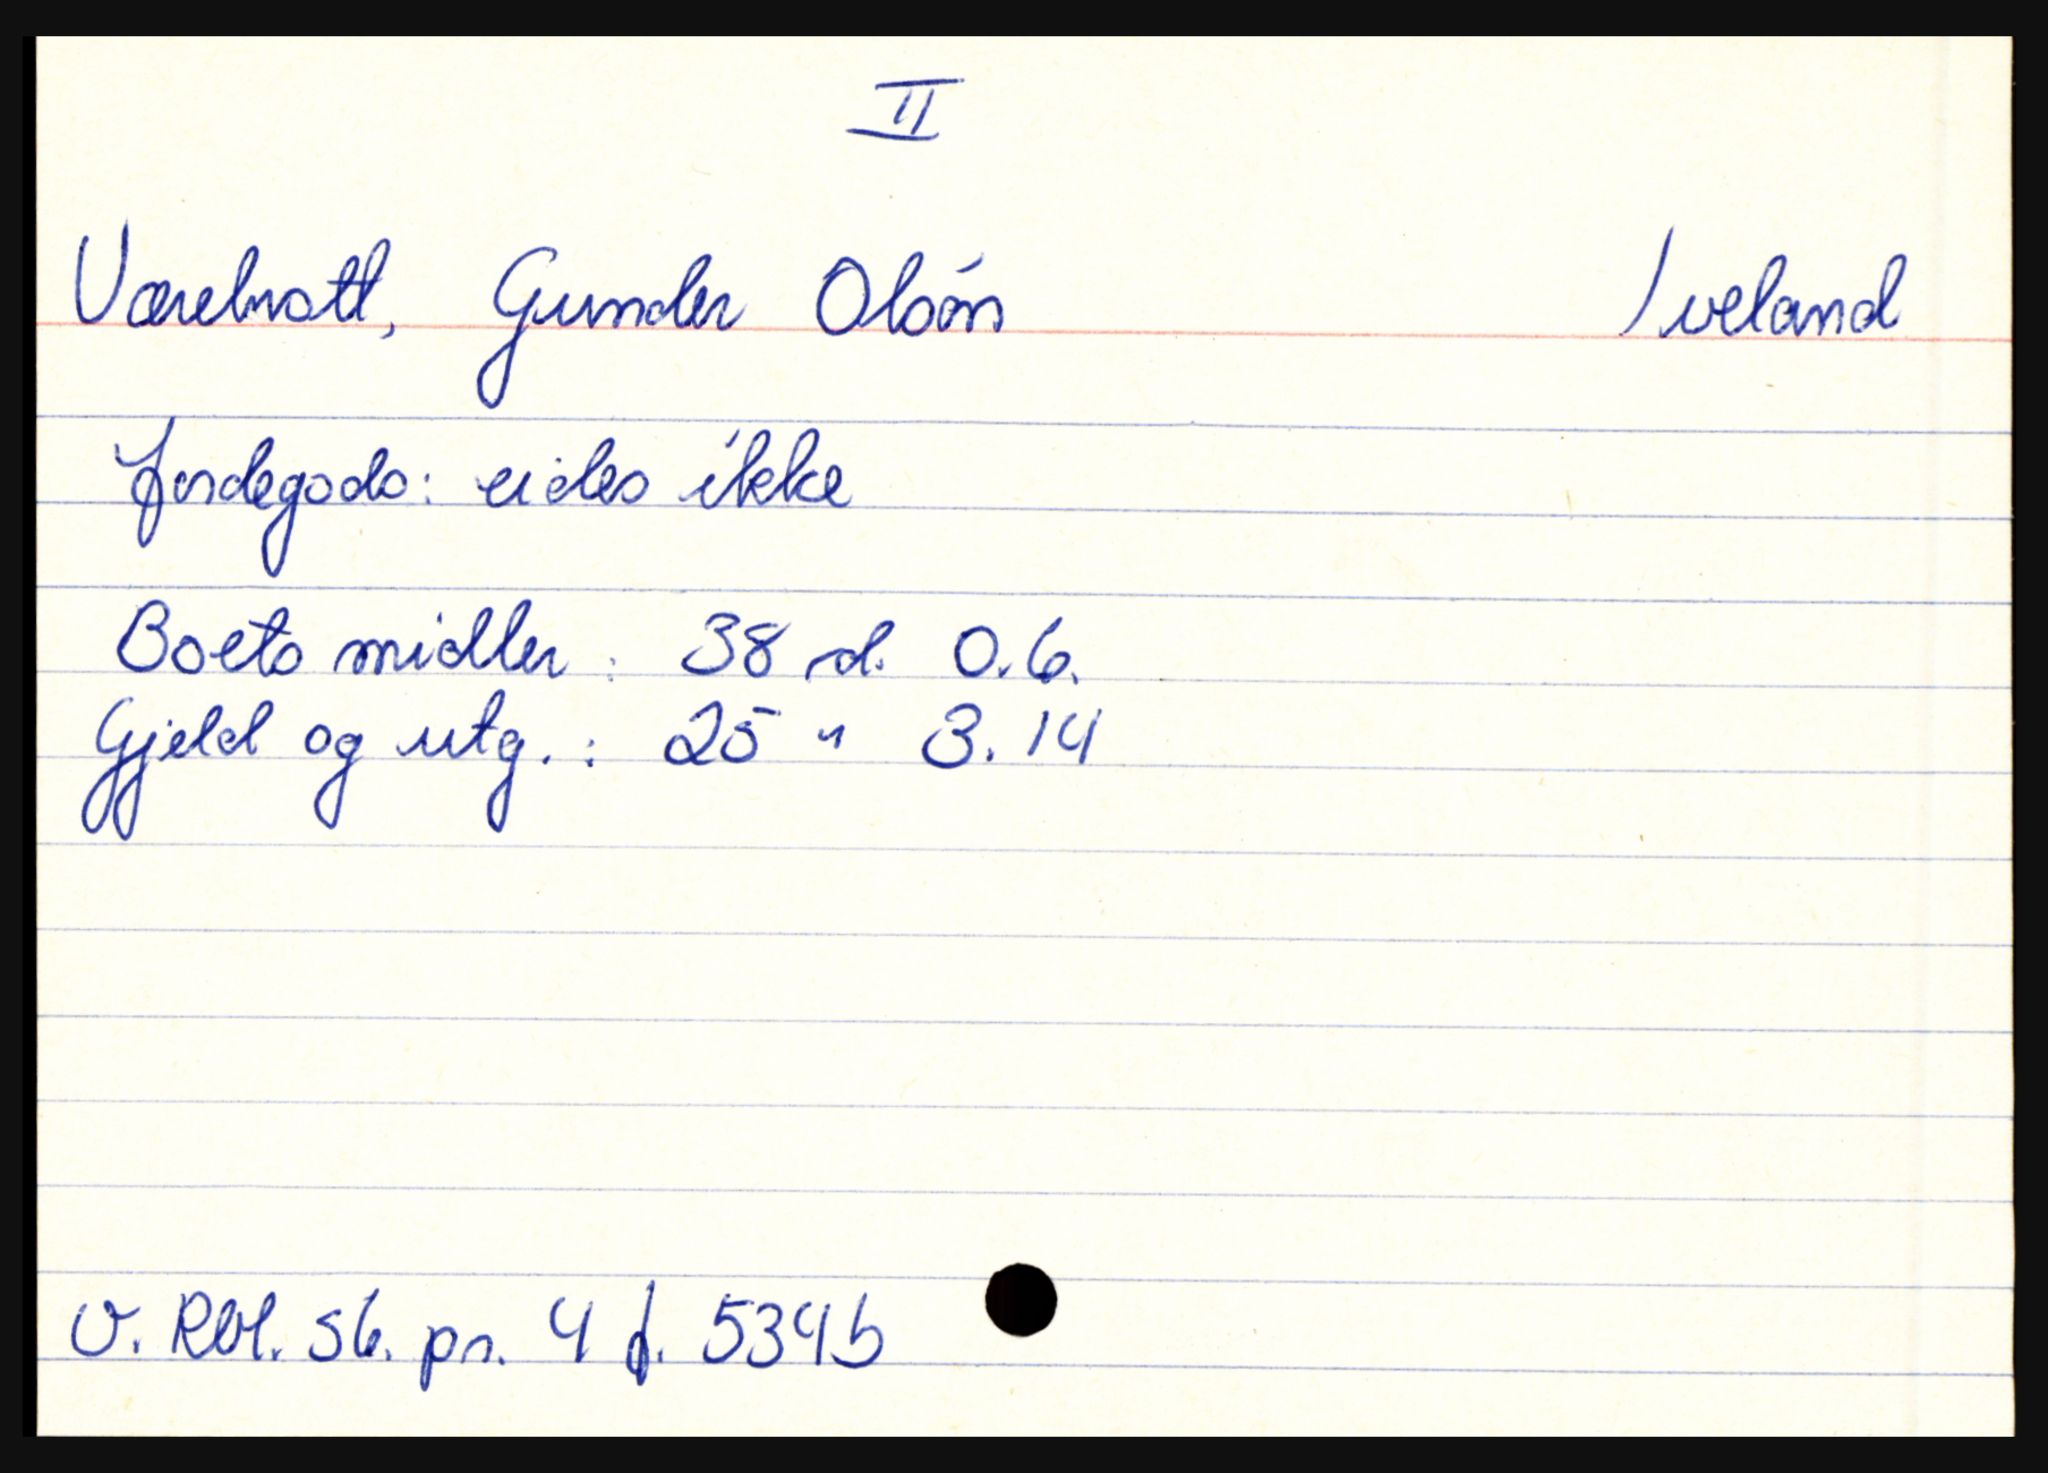 II
Værelvatt, Gunder Olsøn Iveland
Jordegods: eides ikke
Boets midler: 38 rd. 0.6.
Gjeld og utg.: 25 " 3.14
V. Rbl. sk. pr. 4 f. 534b